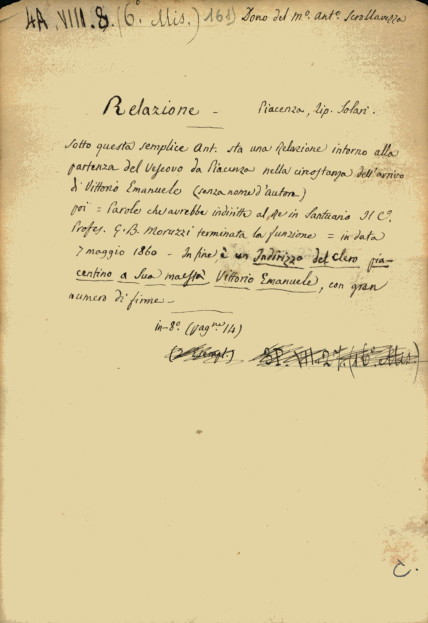 4A. VIII. 8. (6º. Mis.) 16) Dono del mº. Antº. Scrollavezza
Relazione - Piacenza, tip. Solari.
Sotto questa semplice Ant. sta una Relazione intorno alla
partenza del Vescovo da Piacenza nella circostanza dell'arrivo
di Vittorio Emanuele (senza nome d'autore)
poi = Parole che avrebbe indiritte al Re in Santuario Il Cº.
Profes. G. B. Moruzzi terminata la funzione = in data
7 maggio 1860 - In fine, è un Indirizzo del Clero pia-
centino a Sua maestà Vittorio Emanuele, con gran
numero di firme -
in-8º (pagne 14)
C.